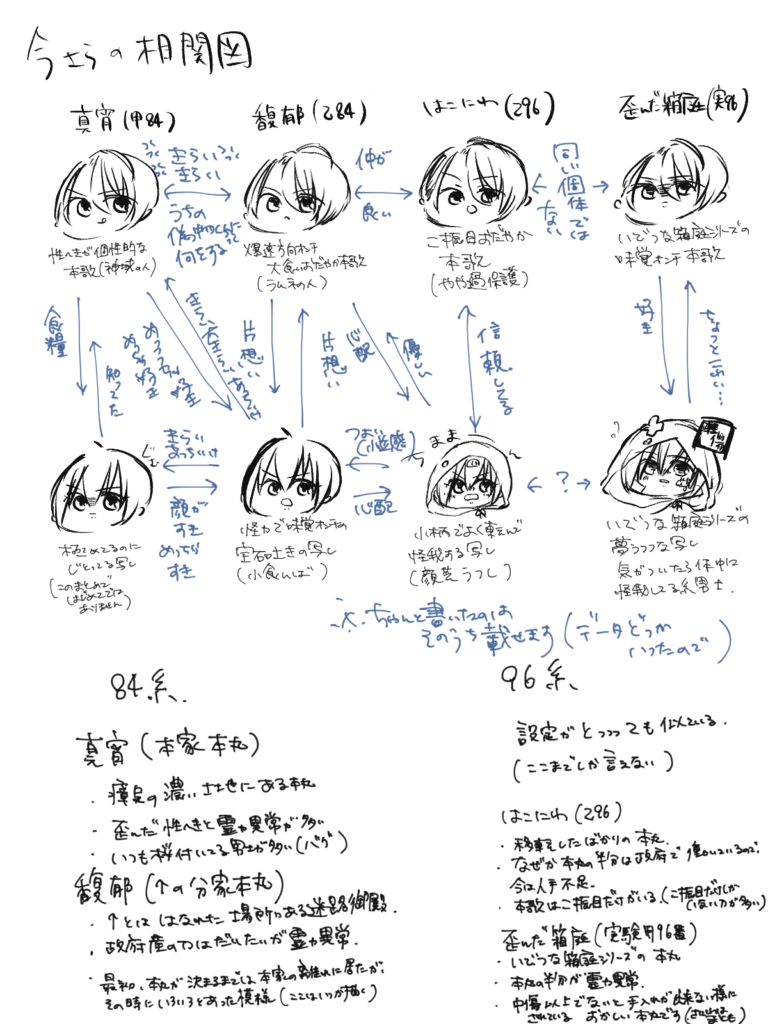 今さらの相関図
真宵(甲84)
馥郁(乙84)
はこにわ(乙96)
歪んだ箱庭(実96)
きらい
きらい
うちの
何をする
仲が
良い
同じ個体では
ない
性へきが個性的な
本歌(神域の人)
爆速方向オンチ
大食いおだやか本歌
ご振目おだやか
本歌
(やや過保護)
いびつな箱庭シリーズの
味覚オンチ本歌
食糧
知ってた
片想い
片想い
心配
優しい
信頼してる
好き
ちょっとこわい…
じと
きらい
あっちいけ
顔が
すき
めっちゃ
すき
つよい
心配
ちまま
ん
?
極めてるのに
じとってる写し
(このまとめで
はじめてでは
ありません)
怪力で味覚オンチの
宝石吐きの写し
(小食んば)
小柄でよく転んで
怪我する写し
いびつな箱庭シリーズの
夢うつつな写し
気がついたら休中に
怪動してる系男士.
※.ちゃんと書いたのは
そのうち載せます(データどっか
いったので)
84系.
真宵(本家本丸)
・瘴気の濃い土地にある本丸
・歪んだ性へきと霊力異常が多い
・いつも桜付いてる男士が多い(バグ)
馥郁(↑の分家本丸)
・↑とは はなれた場所にある迷路御殿.
・政府産の刀はだいたいが霊力異常.
・最初、本丸が決まるまでは本家の離れに居たが、
その時にいろいろとあった模様(ここはいつか描く)
96系、
設定がとっっっても似ている.
(ここまでしか言えない)
はこにわ(乙96)
・移転したばかりの本丸.
・なぜか本丸の半分は政府で働いているので、
今は人手不足.
・本歌はご振目だけがいる.(ご振目だけしか
いない刀が多い)
歪んだ箱庭(実験用96番)
・いびつな箱庭シリーズの本丸
・本丸の半分が霊力異常.
・中傷以上でないと手入れが出来ない様に
されている おかしい本丸です